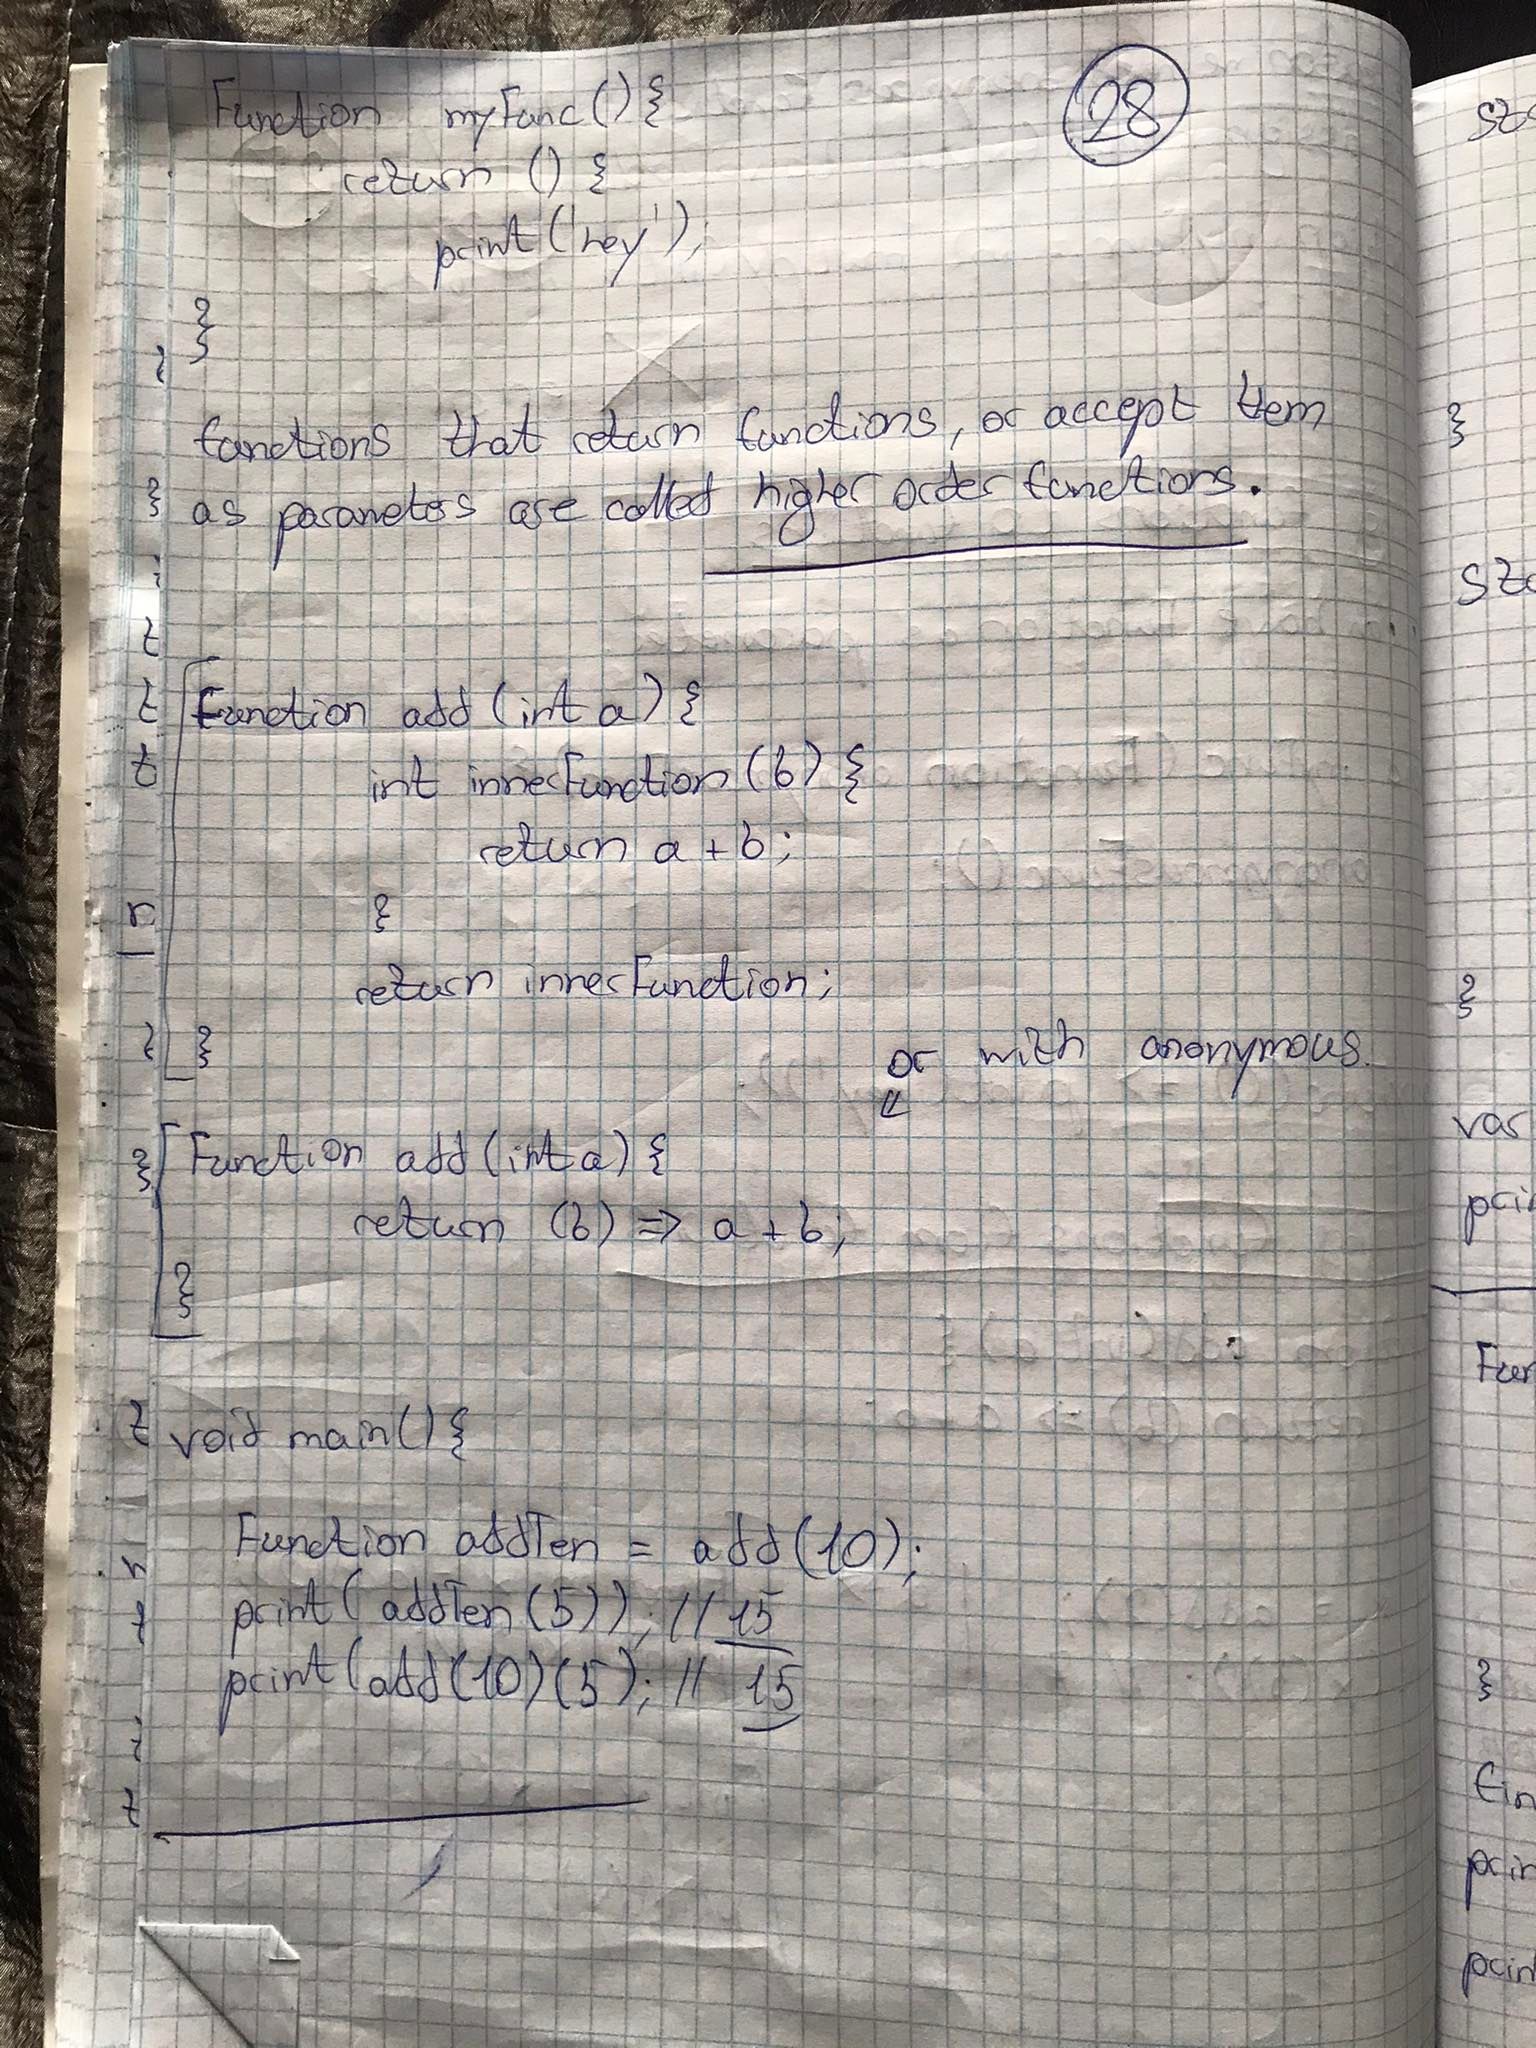 28
Function myFunc() {
return () {
print('hey');
}
}
functions that return functions, or accept tem
as parameters are called higher order functions.
Function add (int a) {
int innerFunction (b) {
return a + b;
}
return innerFunction;
}
or with anonymous.
Function add (int a) {
return (b) => a + b;
}
void main() {
Function addTen = add(10);
print( addTen (5)); // 15
print(add(10)(5); // 15
}
}
var
}